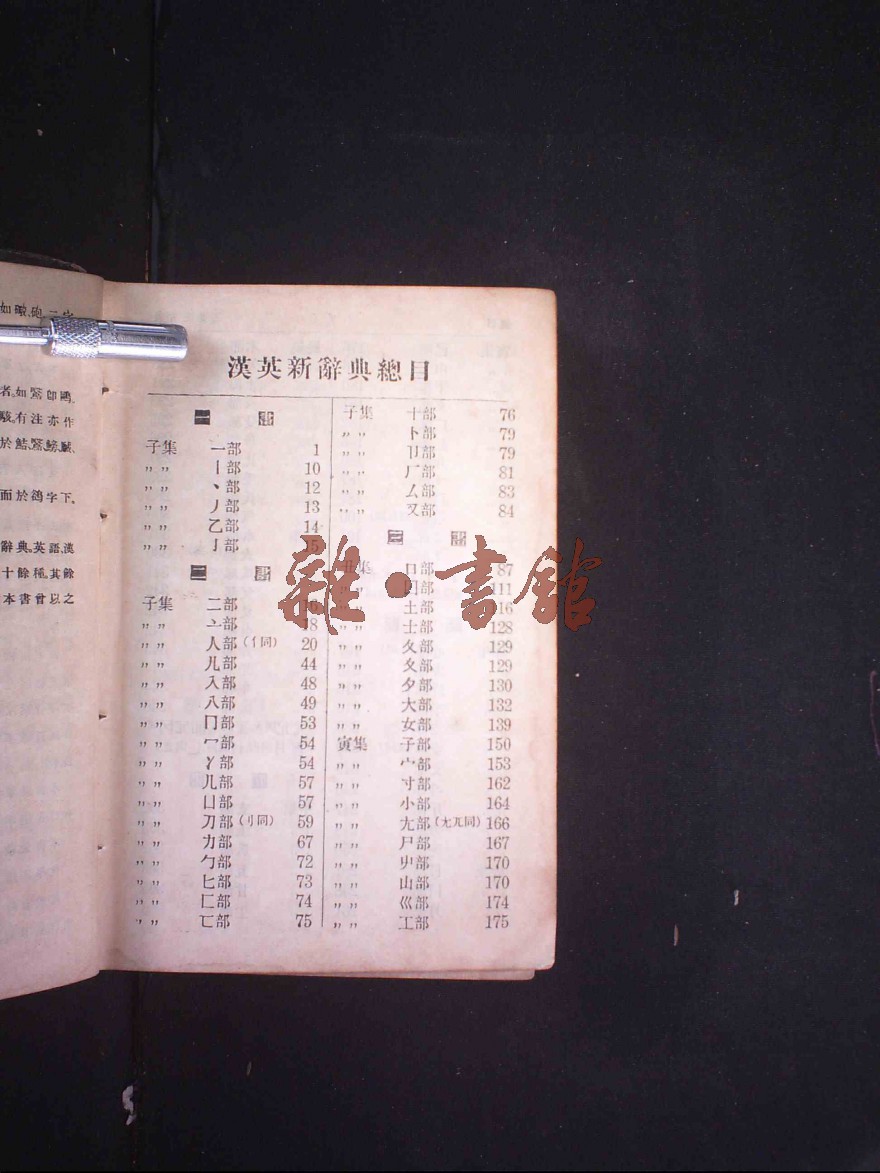 漢英新辭典總目
一畫
子集 一部 1
〃〃 丨部 10
〃〃 丶部 12
〃〃 丿部 13
〃〃 乙部 14
〃〃 亅部 15
二畫
子集 二部 16
〃〃 亠部 18
〃〃 人部(亻同) 20
〃〃 儿部 44
〃〃 入部 48
〃〃 八部 49
〃〃 冂部 53
〃〃 冖部 54
〃〃 冫部 54
〃〃 几部 57
〃〃 凵部 57
〃〃 刀部(刂同) 59
〃〃 力部 67
〃〃 勹部 72
〃〃 匕部 73
〃〃 匚部 74
〃〃 匸部 75
子集 十部 76
〃〃 卜部 79
〃〃 卩部 79
〃〃 厂部 81
〃〃 厶部 83
〃〃 又部 84
三畫
丑集 口部 87
〃〃 囗部 111
〃〃 土部 116
〃〃 士部 128
〃〃 夂部 129
〃〃 夊部 129
〃〃 夕部 130
〃〃 大部 132
〃〃 女部 139
寅集 子部 150
〃〃 宀部 153
〃〃 寸部 162
〃〃 小部 164
〃〃 尢部(尣兀同) 166
〃〃 尸部 167
〃〃 屮部 170
〃〃 山部 170
〃〃 巛部 174
〃〃 工部 175
雜·書館
而於鴿字下。
辭典。英語漢
十餘種。其餘
本書曾以之